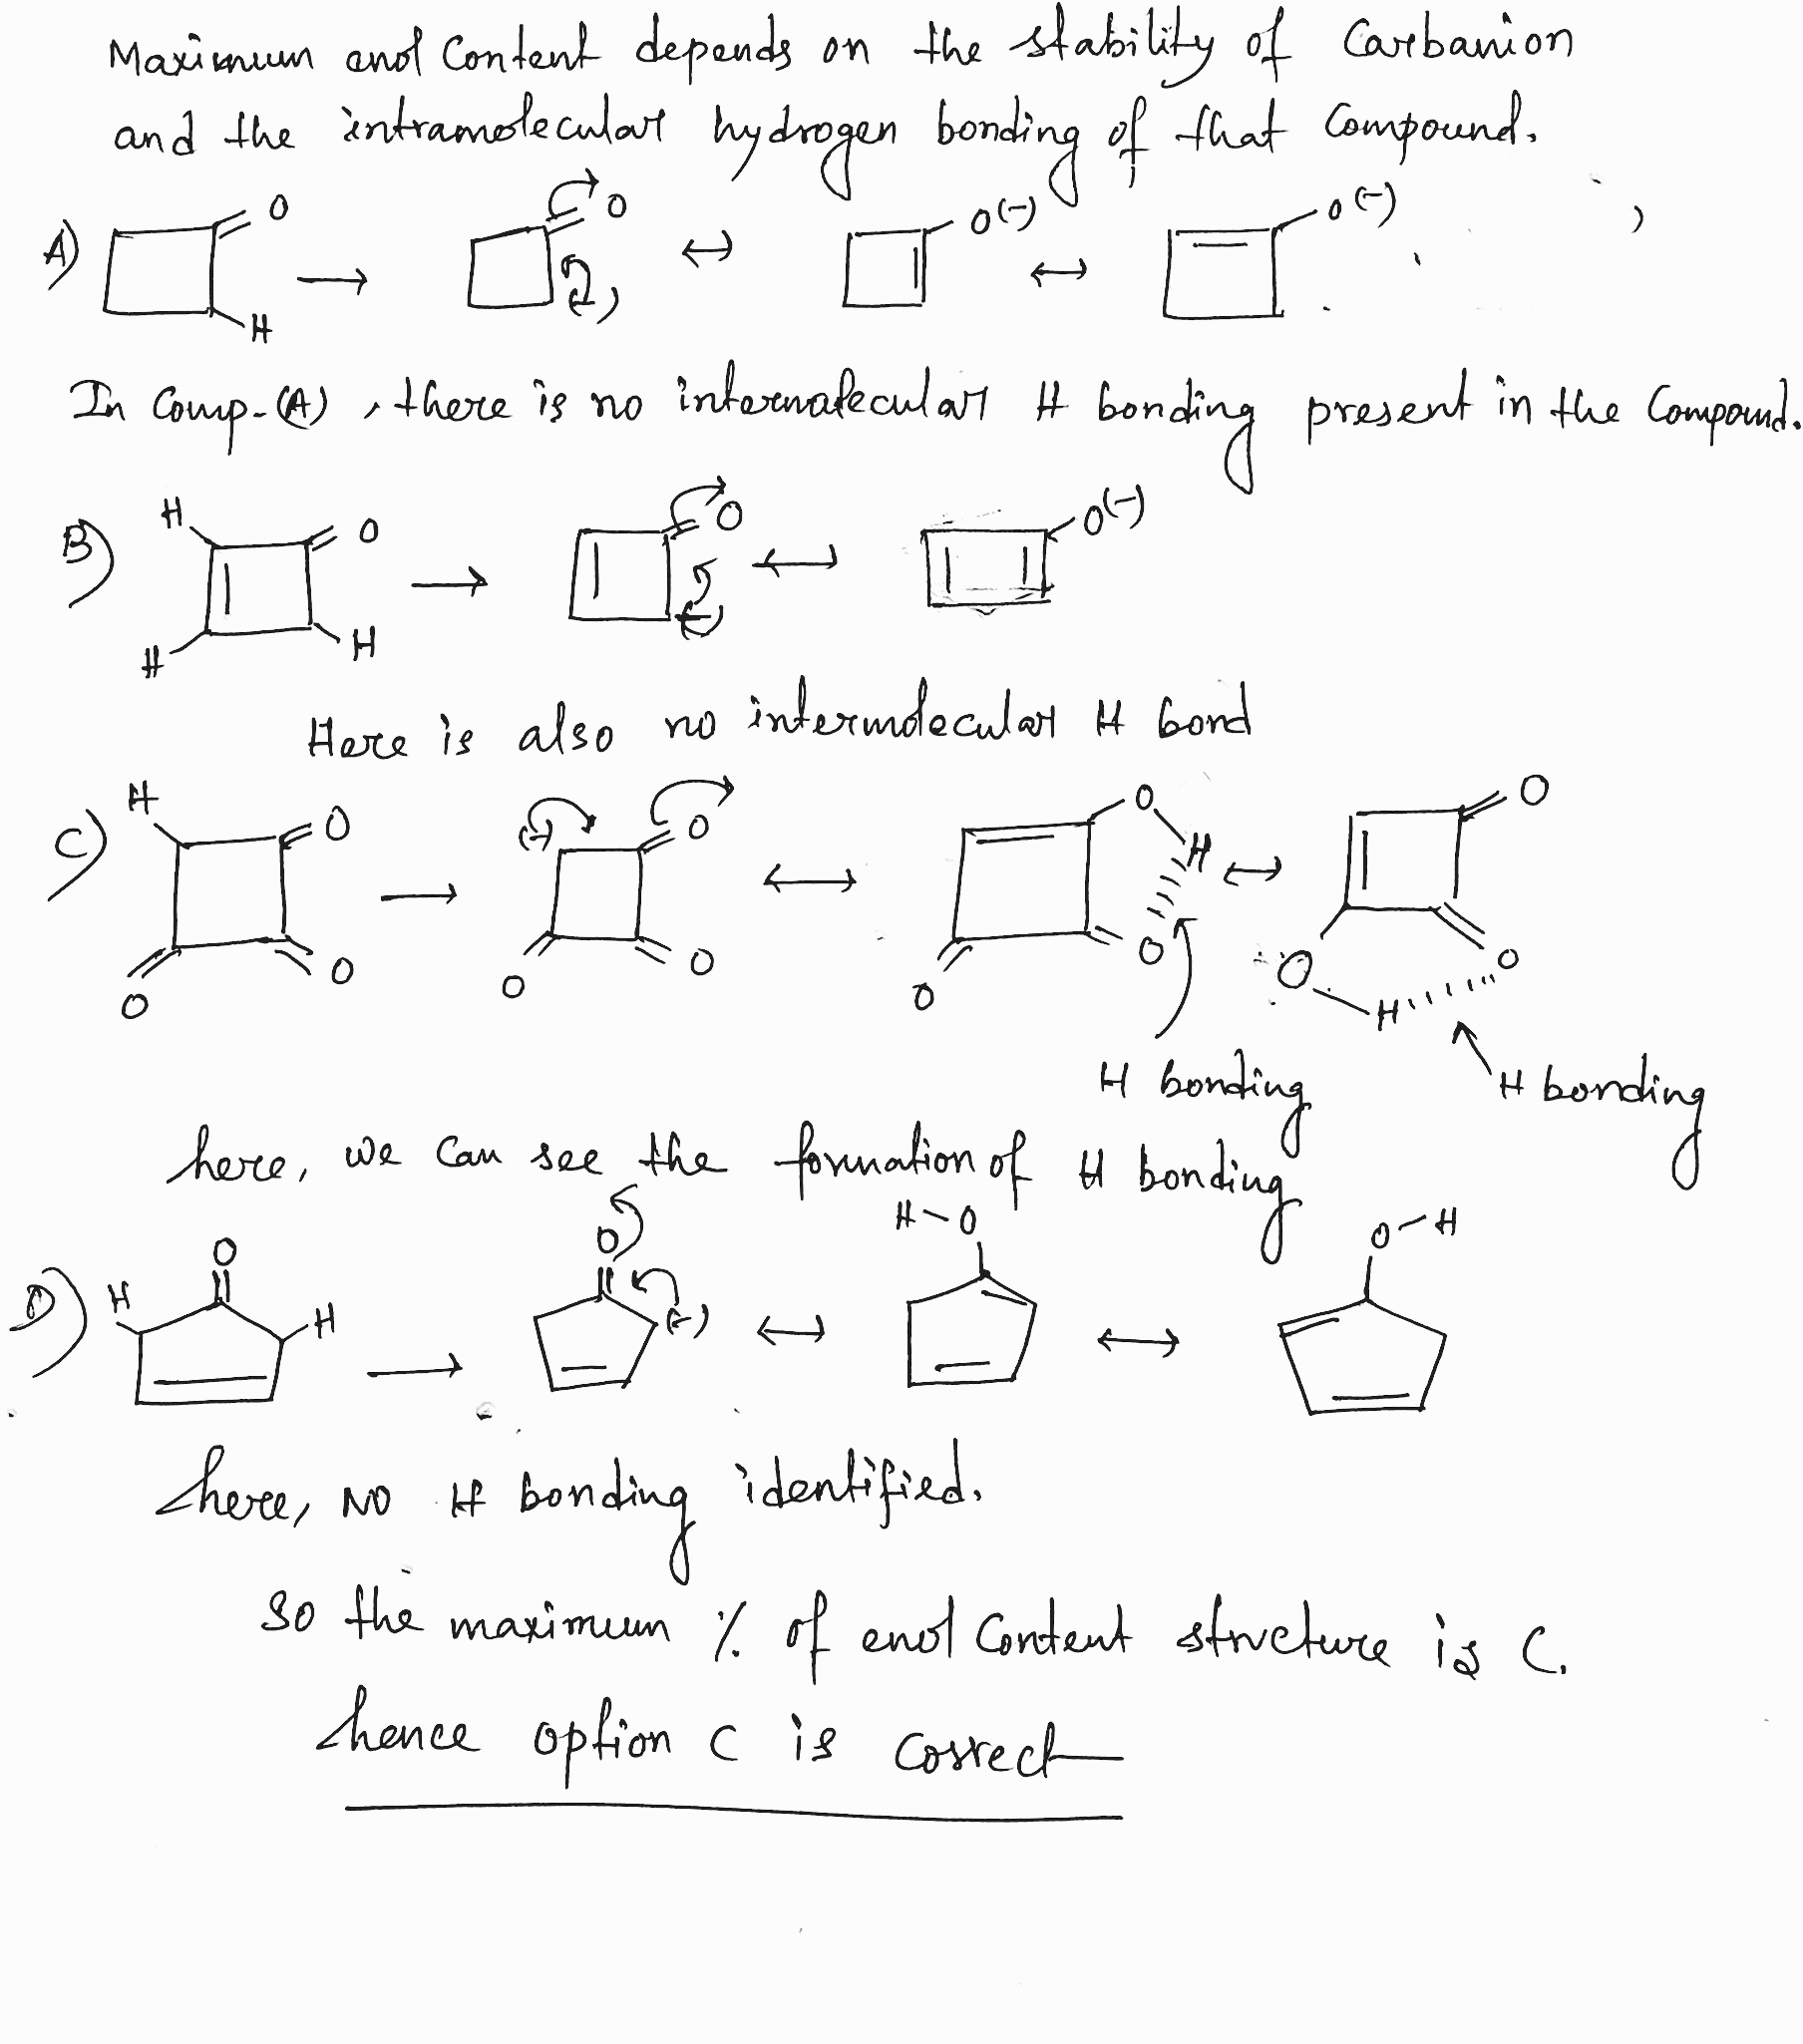 Maximum enol Content depends on the stability of Carbanion
and the intramolecular hydrogen bonding of that Compound.
A) O H → O (-) ↔ O(-) ↔ O(-) ,
In Comp-(A), there is no intermolecular H bonding present in the Compound.
B) H H O H → O (-) ↔ O(-)
Here is also no intermolecular H bond
C) H O O O → (-) O O O ↔ O H O O ↔ O O O H
H bonding H bonding
here, we can see the formation of H bonding
D) H O H → O (-) ↔ H-O ↔ O-H
here, NO H bonding identified.
So the maximum % of enol Content structure is C.
hence option C is correct